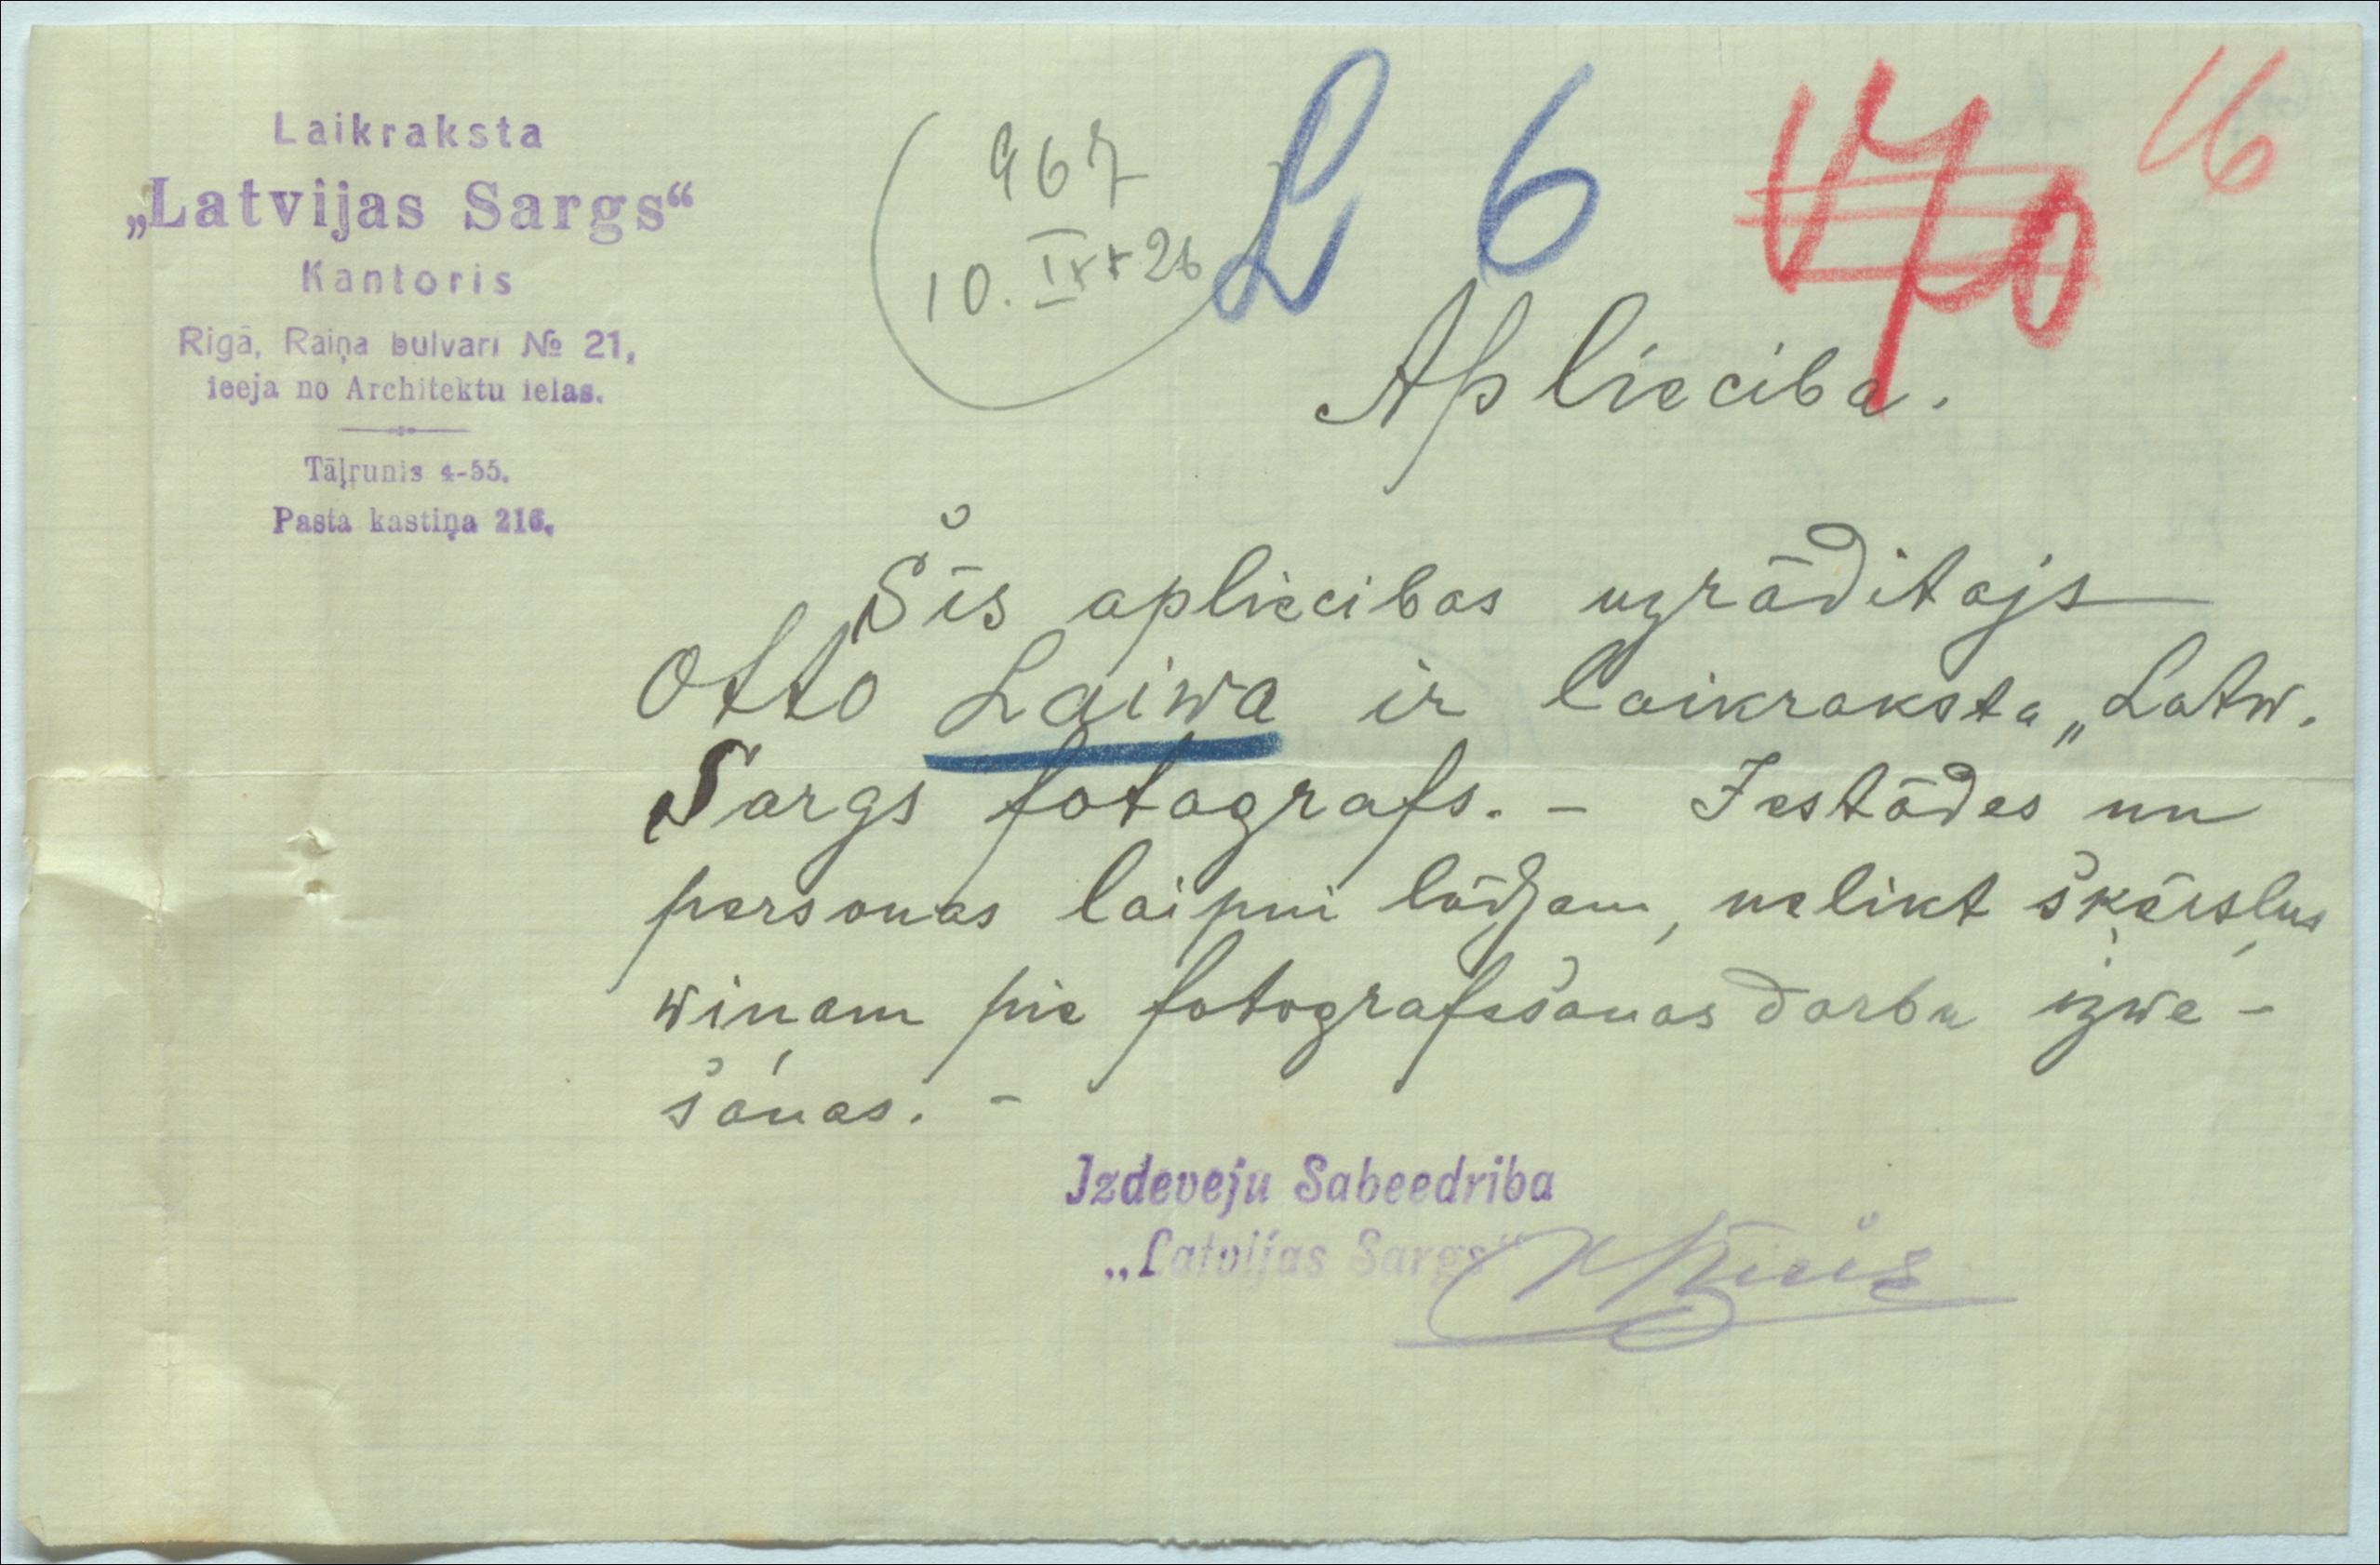 Laikraksta
„Latvijas Sargs“
Kantoris
Rigā, Raiņa bulvarī № 21,
ieeja no Architektu ielas.
Tāļrunis 4-55.
Pasta kastiņa 216.
967
10. 26
L 6
170
16
Aplieciba.
Šīs apliecibas uzrādītajs
Otto Laiwa ir laikraksta „Latw.
Sargs fotografs. – Iestādes un
personas laipni lūdzam, nelikt šķēršļus
wiņam pie fotografešanas darbu izwe-
šanas. –
Izdeveju Sabeedriba
„Latvijas Sargs“